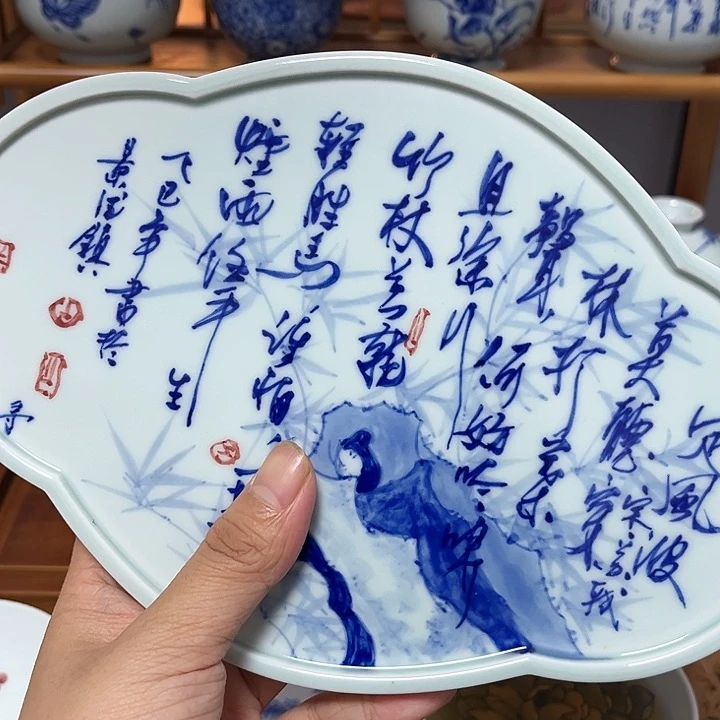 定風波
宋 蘇軾
莫聽穿
林打葉
聲
何妨吟嘯
且徐行
竹杖芒鞋
輕勝馬
誰怕一
煙雨任平
生
乙巳年書於
景德鎮